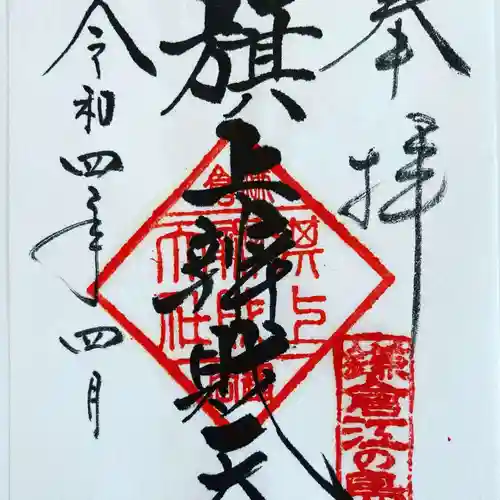 奉拝
旗上辨財天
令和四年四月
鎌倉江の島